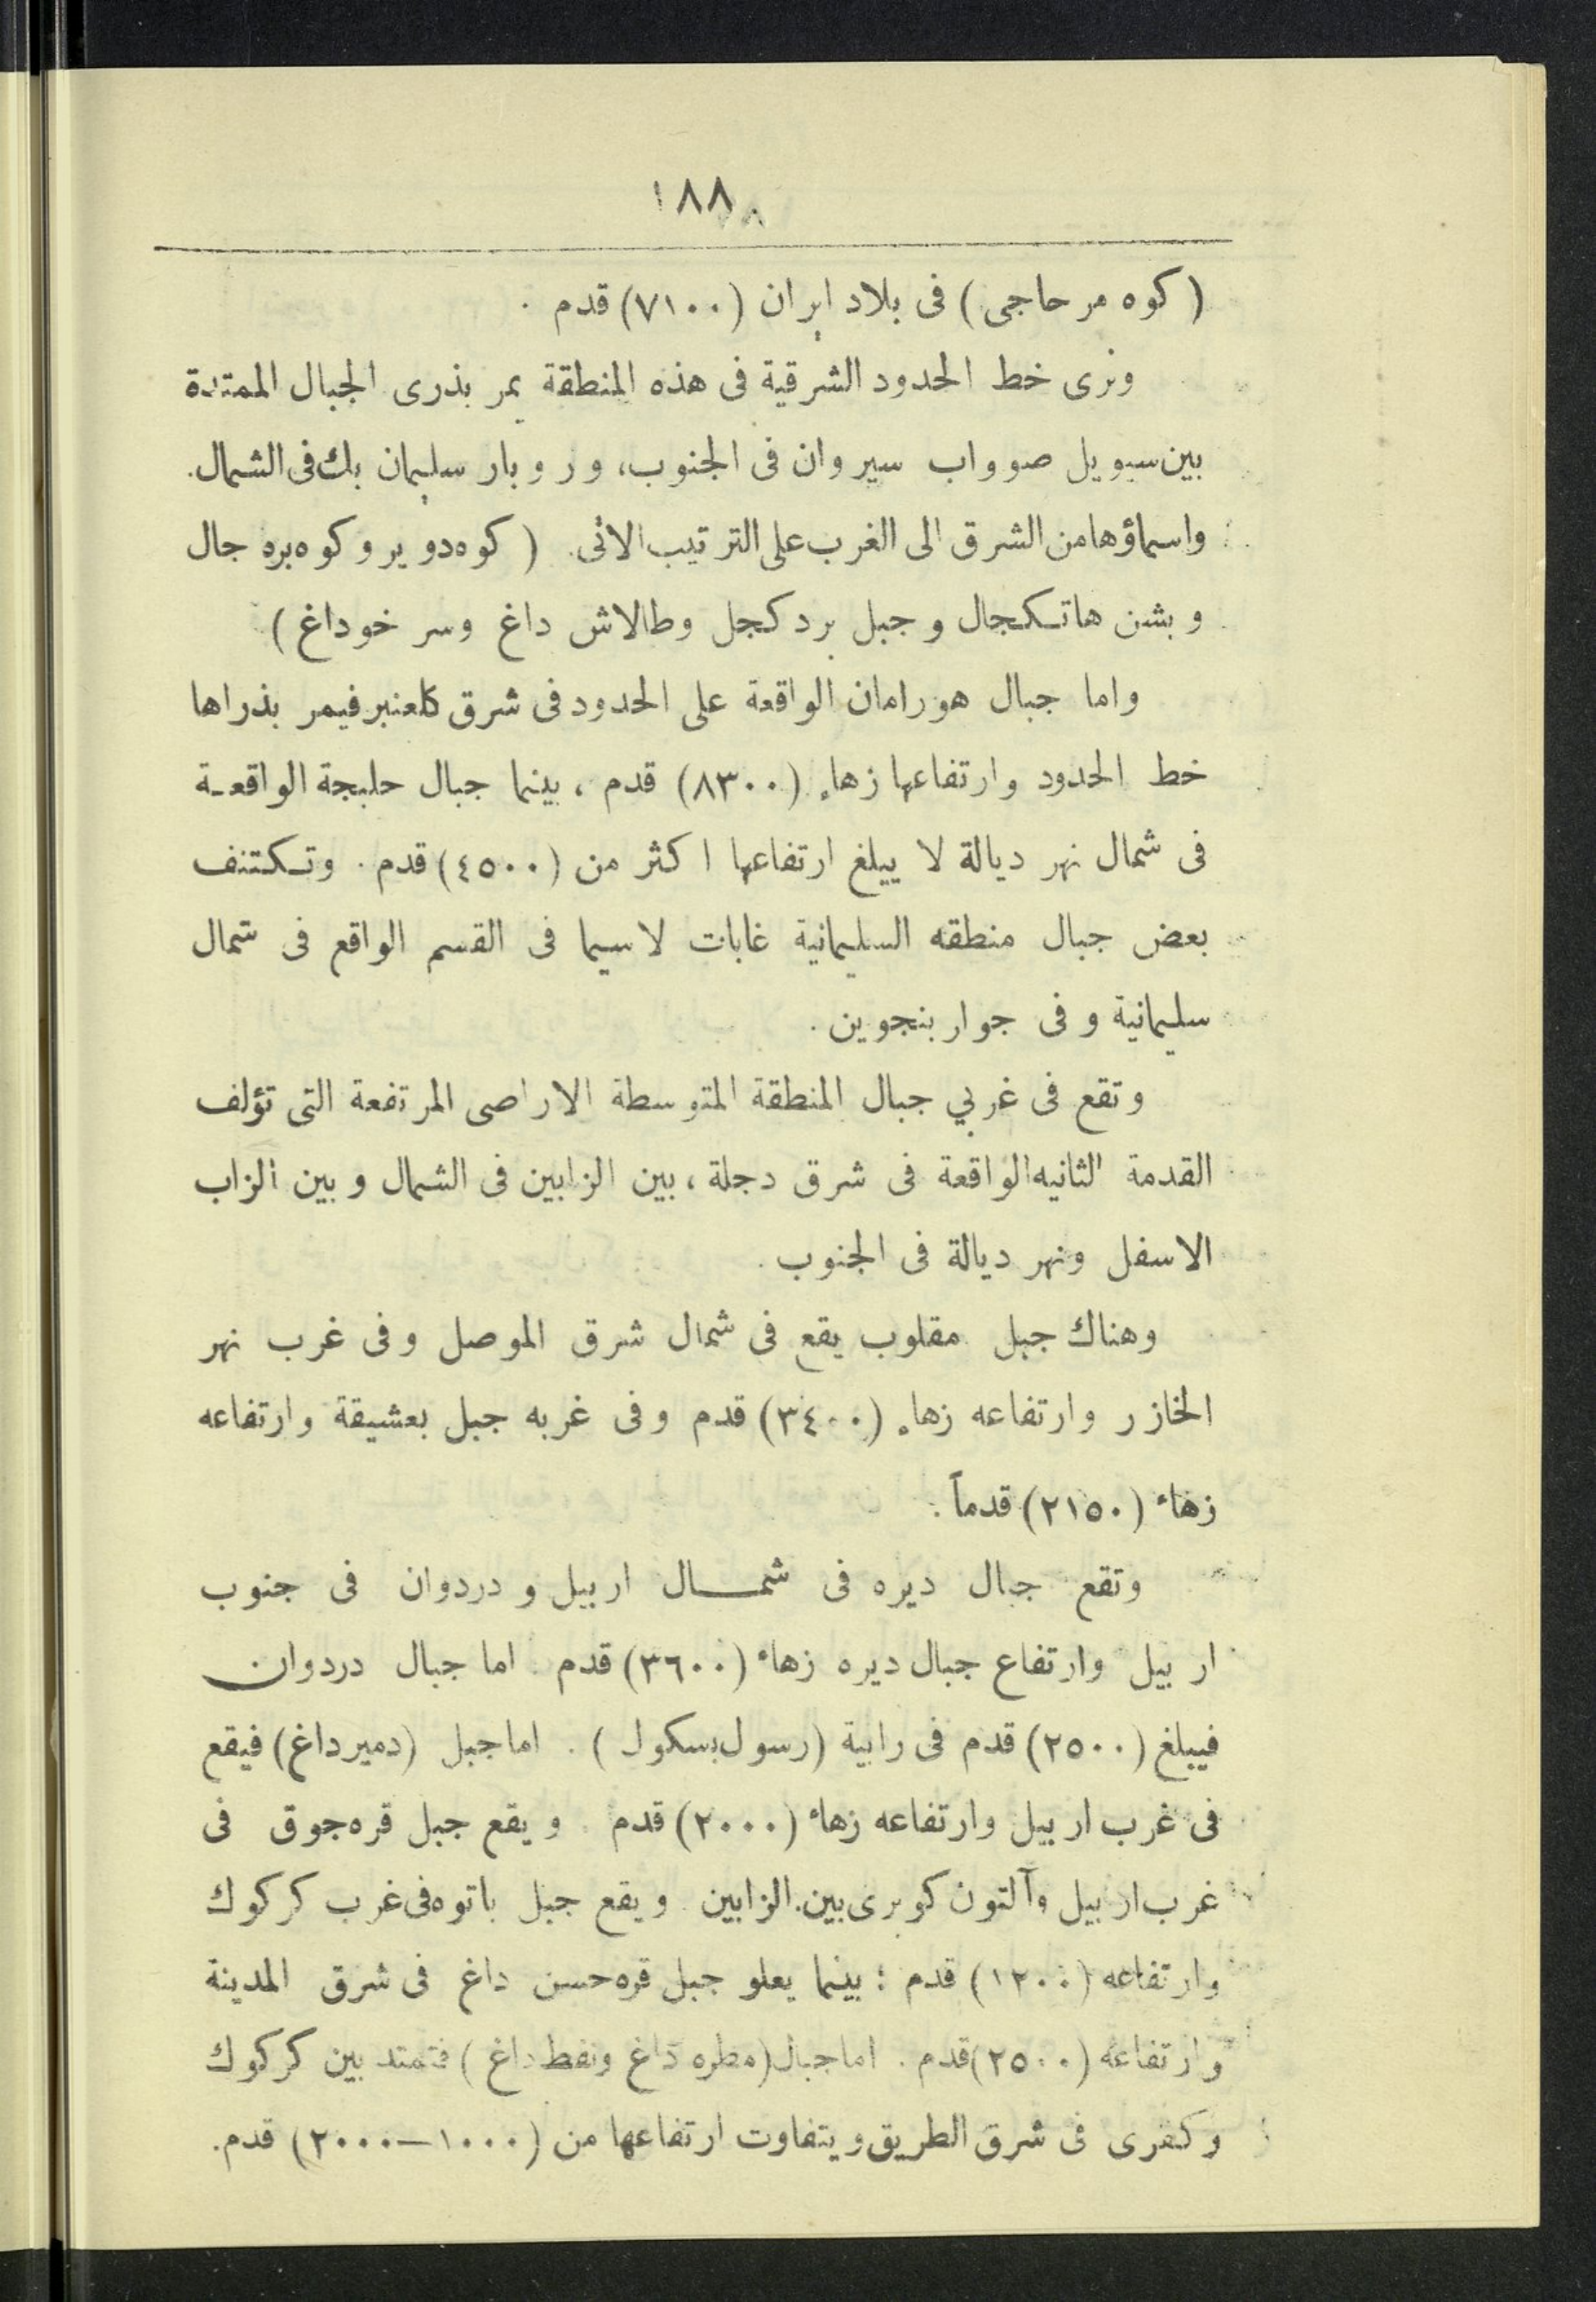 ١٨٨
( كوه مر حاجى ) فى بلاد ايران (٧١٠٠) قدم .
ونرى خط الحدود الشرقية فى هذه المنطقة يمر بذرى الجبال الممتدة
بين سيويل صوواب سيروان فى الجنوب، وروبار سليمان بك فى الشمال.
واسماؤها من الشرق الى الغرب على الترتيب الآتى. ( كوه دوير وكوه بره جال
وبشن هاتكجال وجبل بردكجل وطالاش داغ وسر خوداغ )
واما جبال هورامان الواقعة على الحدود فى شرق كلعنبر فيمر بذراها
خط الحدود وارتفاعها زهاء (٨٣٠٠) قدم ، بينما جبال حلبجة الواقعـة
فى شمال نهر ديالة لا ييلغ ارتفاعها اكثر من (٤٥٠٠) قدم . وتـكتنف
بعض جبال منطقه السليمانية غابات لاسيما فى القسم الواقع فى شمال
سليمانية وفى جوار بنجوين .
وتقع فى غربي جبال المنطقة المتوسطة الاراضى المرتفعة التى تؤلف
القدمة الثانيه الواقعة فى شرق دجلة ، بين الزابين فى الشمال وبين الزاب
الاسفل ونهر ديالة فى الجنوب .
وهناك جبل مقلوب يقع فى شمال شرق الموصل وفى غرب نهر
الخازر وارتفاعه زهاء (٣٤٠٠) قدم وفى غربه جبل بعشيقة وارتفاعه
زهاء (٢١٥٠) قدماً .
وتقع جبال ديره فى شمـــال اربيل ودردوان فى جنوب
اربيل وارتفاع جبال ديره زهاء (٣٦٠٠) قدم . اما جبال دردوان
فيبلغ (٢٥٠٠) قدم فى رابية (رسول بسكول ) . اما جبل (دمير داغ) فيقع
فى غرب اربيل وارتفاعه زهاء (٢٠٠٠) قدم . ويقع جبل قره جوق فى
غرب اربيل وآلتون كوبرى بين الزابين . ويقع جبل باتوه فى غرب كركوك
وارتفاعه (١٢٠٠) قدم ؛ بينما يعلو جبل قره حسن داغ فى شرق المدينة
وارتفاعه (٢٥٠٠) قدم . اما جبال (مطره داغ ونفط داغ ) فتمتد بين كركوك
وكفرى فى شرق الطريق ويتفاوت ارتفاعها من (١٠٠٠—٢٠٠٠) قدم.